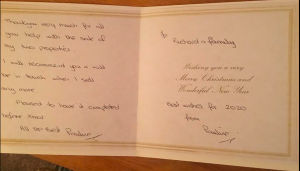 Thankyou very much for all
you help with the sale of
my two properties.
I will recommend you & will
be in touch when I sell
any more
Pleased to have it completed
before Xmas.
All the Best Pauline
To Richard & family
Wishing you a very
Merry Christmas and
Wonderful New Year
Best wishes for 2020
from
Pauline